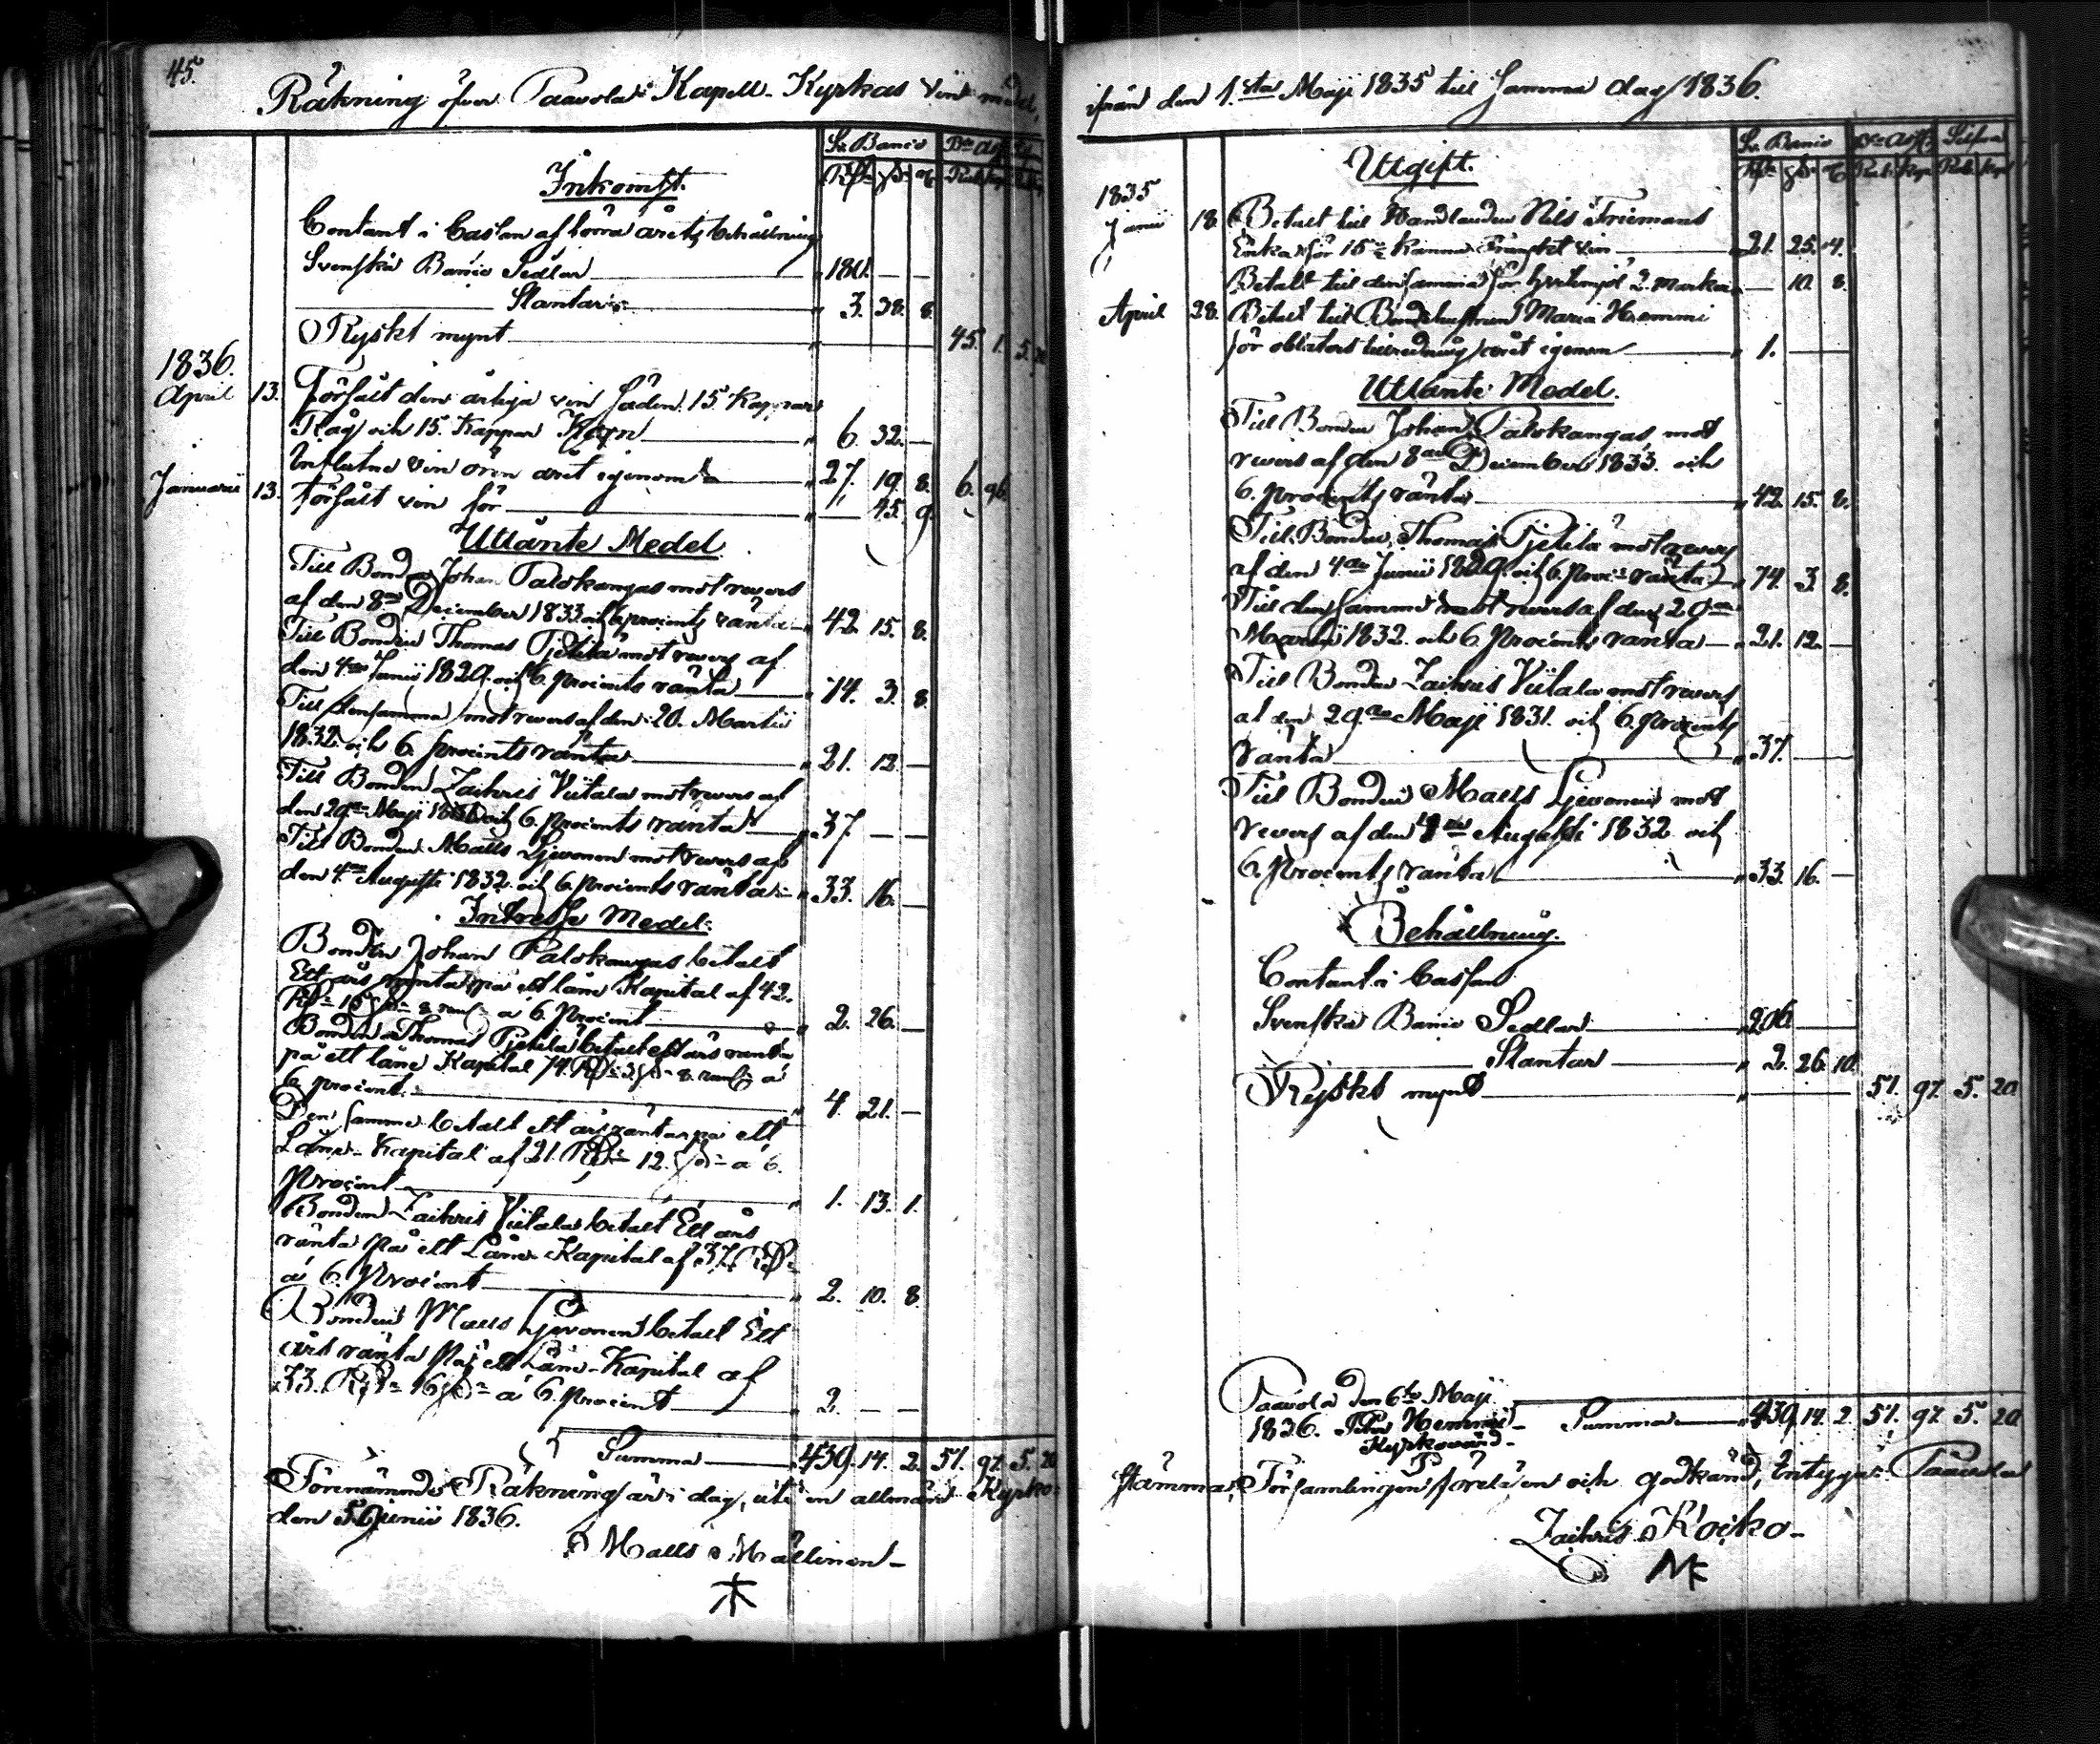 45.
Räkning öfver Paavola Kapell-Kyrkas Vin medel,
Sv. Banco
Inkomst.
Contant i Cassan af förra årets behållning
Svenska Banco Sedlar 181. — —
Slantar 3. 38. 8.
Ryskt mynt 45. 1. 5. 20
1836.
April 13. Försålt den årliga vin säden 15. Kappar
Råg och 15. Kappar Korn 6. 32. —
Influtne vin ören året igenom 27. 19. 8. 6. 96.
Januarii 13. Försålt vin för — 45. 9.
Utlånte Medel.
Till Bonden Johan Palokangas mot revers
af den 8de December 1833 och 6 procents ränta 42. 15. 8.
Till Bonden Thomas Pjetilä mot revers af
den 4de Junii 1829. och 6. procents ränta 74. 3. 8.
Till densamma mot revers af den 20. Martii
1832. och 6. procents ränta 21. 12. —
Till Bonden Zachris Viitala mot revers af
den 29de Maji 1831 och 6. procents ränta 37. — —
Till Bonden Matts Ljevonen mot revers af
den 4de Augusti 1832. och 6. procents ränta 33. 16. —
Intresse Medel.
Bonden Johan Palokangas betalt
Ett års ränta på ett låne Kapital af 42.
Rd 15 s 8 rst á 6. Procent 2. 26. —
Bonden Thomas Pjetilä betalt ett års ränta
på ett låne Kapital 74. Rd 3 s 8. rst á
6. procent. 4. 21. —
Den samme betalt ett års ränta på ett
Låne-Kapital af 21. Rd 12. s á 6.
Procent 1. 13. 1.
Bonden Zachris Viitala betalt Ett års
ränta på ett Låne Kapital af 37. Rd
á 6. Procent 2. 10. 8.
Bonden Matts Ljevonen betalt Ett
års ränta på ett Låne-Kapital af
33. Rd 16 s á 6. procent 2. — —
Summa 439. 14. 2. 51. 97. 5. 20
Förenämnde Räkning är i dag, uti en allmän Kyrko-
den 5 Junii 1836.
Matts Mällinen
ifrån den 1.sta Maji 1835 till samma dag 1836.
Sv. Banco Silfver
Utgift.
1835
Junii 18. Betalt till Handlanden Nils Friemans
Enka för 15 Kannor Franskt vin 21. 25. 4.
Betalt till densamma för hvetemjöl 2. marker — 10. 8.
April 28. Betalt till Bondehustrun Maria Hemmi
för oblaters tillredning året igenom 1. —
Utlånte Medel.
Till Bonden Johan Palokangas mot
revers af den 8de December 1833. och
6. procents ränta 42. 15. 8.
Till Bonden Thomas Pjetilä mot revers
af den 4de Junii 1829. och 6. proc. ränta 74. 3. 8.
Till densamme mot revers af den 20de
Martii 1832. och 6. Procents ränta 21. 12. —
Till Bonden Zachris Viitala mot revers
af den 29de Maji 1831. och 6. procents
ränta 37. —
Till Bonden Matts Ljevonen mot
revers af den 4de Augusti 1832. och
6. Procents ränta 33. 16. —
Behållning.
Contant i Cassan
Svenska Banco Sedlar 206. —
Slantar 2. 26. 10.
Ryskt mynt 51. 97. 5. 20
Paavola den 6te Maji
1836. Hemmi Summa 439. 14. 2. 51. 97. 5. 20
Kyrkovärd
stämma, Församlingen föreläsen och godkänd, intygar. Paavola
Zachris Koisko